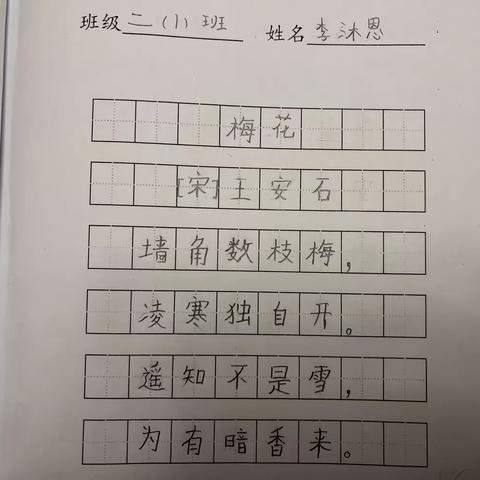 班级二（1）班 姓名李沐恩
梅花
[宋]王安石
墙角数枝梅，
凌寒独自开。
遥知不是雪，
为有暗香来。